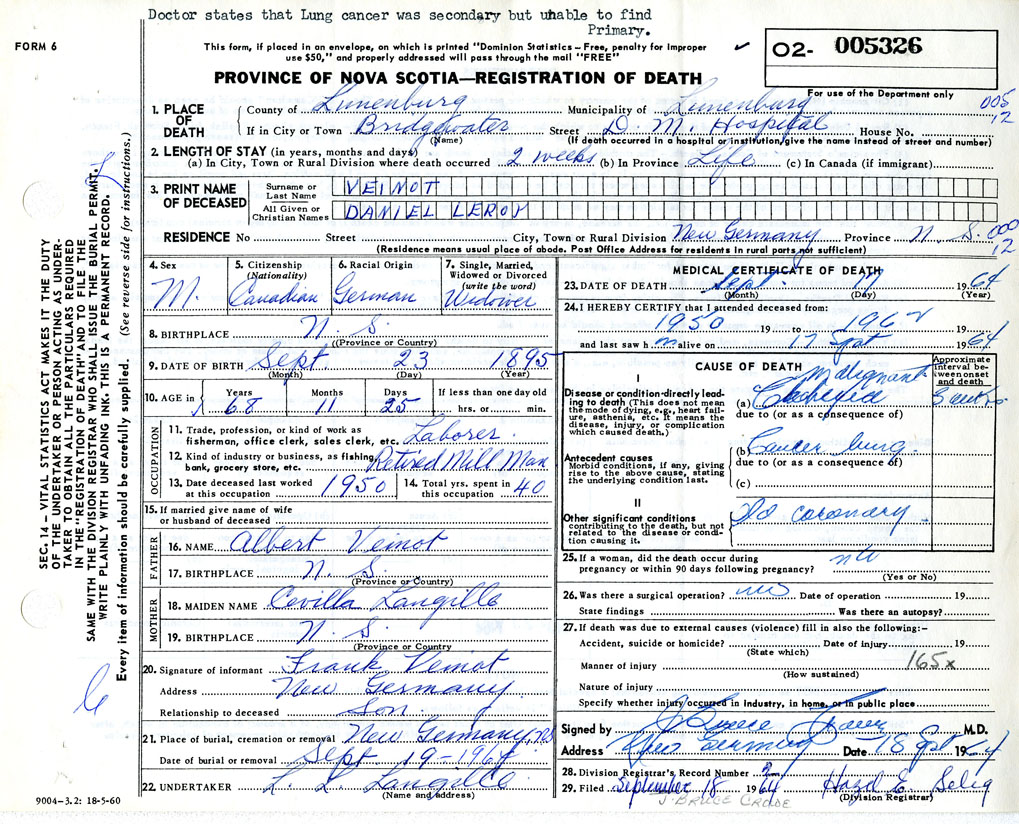 Doctor states that Lung cancer was secondary but unable to find
Primary.
FORM 6
This form, if placed in an envelope, on which is printed "Dominion Statistics – Free, penalty for improper
use $50," and properly addressed will pass through the mail "FREE"
O2- 005326
For use of the Department only
PROVINCE OF NOVA SCOTIA—REGISTRATION OF DEATH
005
12
SEC. 14 – VITAL STATISTICS ACT MAKES IT THE DUTY
OF THE UNDERTAKER OR PERSON ACTING AS UNDER-
TAKER TO OBTAIN ALL THE PARTICULARS REQUIRED
IN THE "REGISTRATION OF DEATH" AND TO FILE THE
SAME WITH THE DIVISION REGISTRAR WHO SHALL ISSUE THE BURIAL PERMIT.
WRITE PLAINLY WITH UNFADING INK. THIS IS A PERMANENT RECORD.
Every item of information should be carefully supplied. (See reverse side for instructions.)
1. PLACE OF DEATH
County of Lunenburg Municipality of Lunenburg
If in City or Town Bridgewater Street D. M. Hospital House No.
(Name) (If death occurred in a hospital or institution, give the name instead of street and number)
2. LENGTH OF STAY (in years, months and days)
(a) In City, Town or Rural Division where death occurred 2 weeks (b) In Province Life (c) In Canada (if immigrant)
3. PRINT NAME OF DECEASED
Surname or Last Name VEINOT
All Given or Christian Names DANIEL LEROY
RESIDENCE No Street City, Town or Rural Division New Germany Province N. S.
000
12
(Residence means usual place of abode. Post Office Address for residents in rural parts not sufficient)
4. Sex M.
5. Citizenship (Nationality) Canadian
6. Racial Origin German
7. Single, Married, Widowed or Divorced (write the word) Widower
8. BIRTHPLACE N. S.
(Province or Country)
9. DATE OF BIRTH Sept 23 1895
(Month) (Day) (Year)
10. AGE in Years 68 Months 11 Days 25 If less than one day old hrs. or min.
OCCUPATION
11. Trade, profession, or kind of work as fisherman, office clerk, sales clerk, etc. Laborer
12. Kind of industry or business, as fishing, bank, grocery store, etc. Retired Mill Man
13. Date deceased last worked at this occupation 1950
14. Total yrs. spent in this occupation 40
15. If married give name of wife or husband of deceased
FATHER
16. NAME Albert Veinot
17. BIRTHPLACE N. S.
(Province or Country)
MOTHER
18. MAIDEN NAME Cevilla Langille
19. BIRTHPLACE N. S.
(Province or Country)
20. Signature of informant Frank Veinot
Address New Germany
Relationship to deceased Son
21. Place of burial, cremation or removal New Germany, N.S.
Date of burial or removal Sept 19-1964
22. UNDERTAKER L. L. Langille
(Name and address)
9004–3.2: 18-5-60
MEDICAL CERTIFICATE OF DEATH
23. DATE OF DEATH Sept. 17 1964
(Month) (Day) (Year)
24. I HEREBY CERTIFY that I attended deceased from:
1950 19 to 1962 19
and last saw h m alive on 17 Sept 1964
CAUSE OF DEATH
Approximate interval between onset and death
I
Disease or condition directly leading to death (This does not mean the mode of dying, e.g., heart failure, asthenia, etc. It means the disease, injury, or complication which caused death.)
(a) Malignant Cachexia
due to (or as a consequence of)
Antecedent causes
Morbid conditions, if any, giving rise to the above cause, stating the underlying condition last.
(b) Cancer lung.
due to (or as a consequence of)
(c)
II
Other significant conditions contributing to the death, but not related to the disease or condition causing it.
Old coronary
25. If a woman, did the death occur during pregnancy or within 90 days following pregnancy?
(Yes or No)
26. Was there a surgical operation? no Date of operation 19
State findings Was there an autopsy?
27. If death was due to external causes (violence) fill in also the following:–
Accident, suicide or homicide? Date of injury 19
(State which)
Manner of injury 165x
(How sustained)
Nature of injury
Specify whether injury occurred in Industry, in home, or in public place
Signed by M.D.
Address New Germany Date 18 Sept 1964
28. Division Registrar's Record Number
29. Filed September 18 1964 Hazel E. Selig
(Division Registrar)
J. BRUCE CROWE